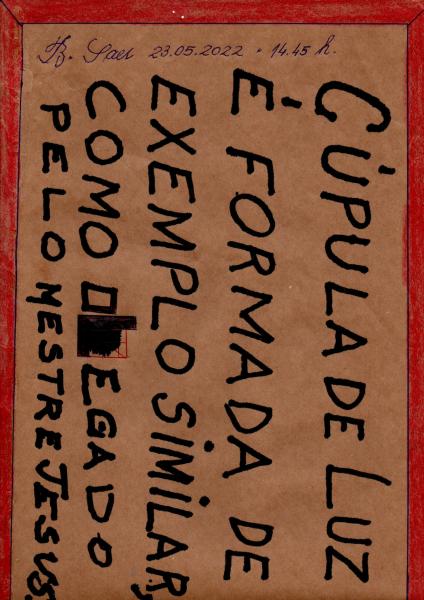 23.05.2022 • 14.45 h.
CÚPULA DE LUZ
É FORMADA DE
EXEMPLO SIMILAR,
COMO O EGADO
PELO MESTRE JESUS.